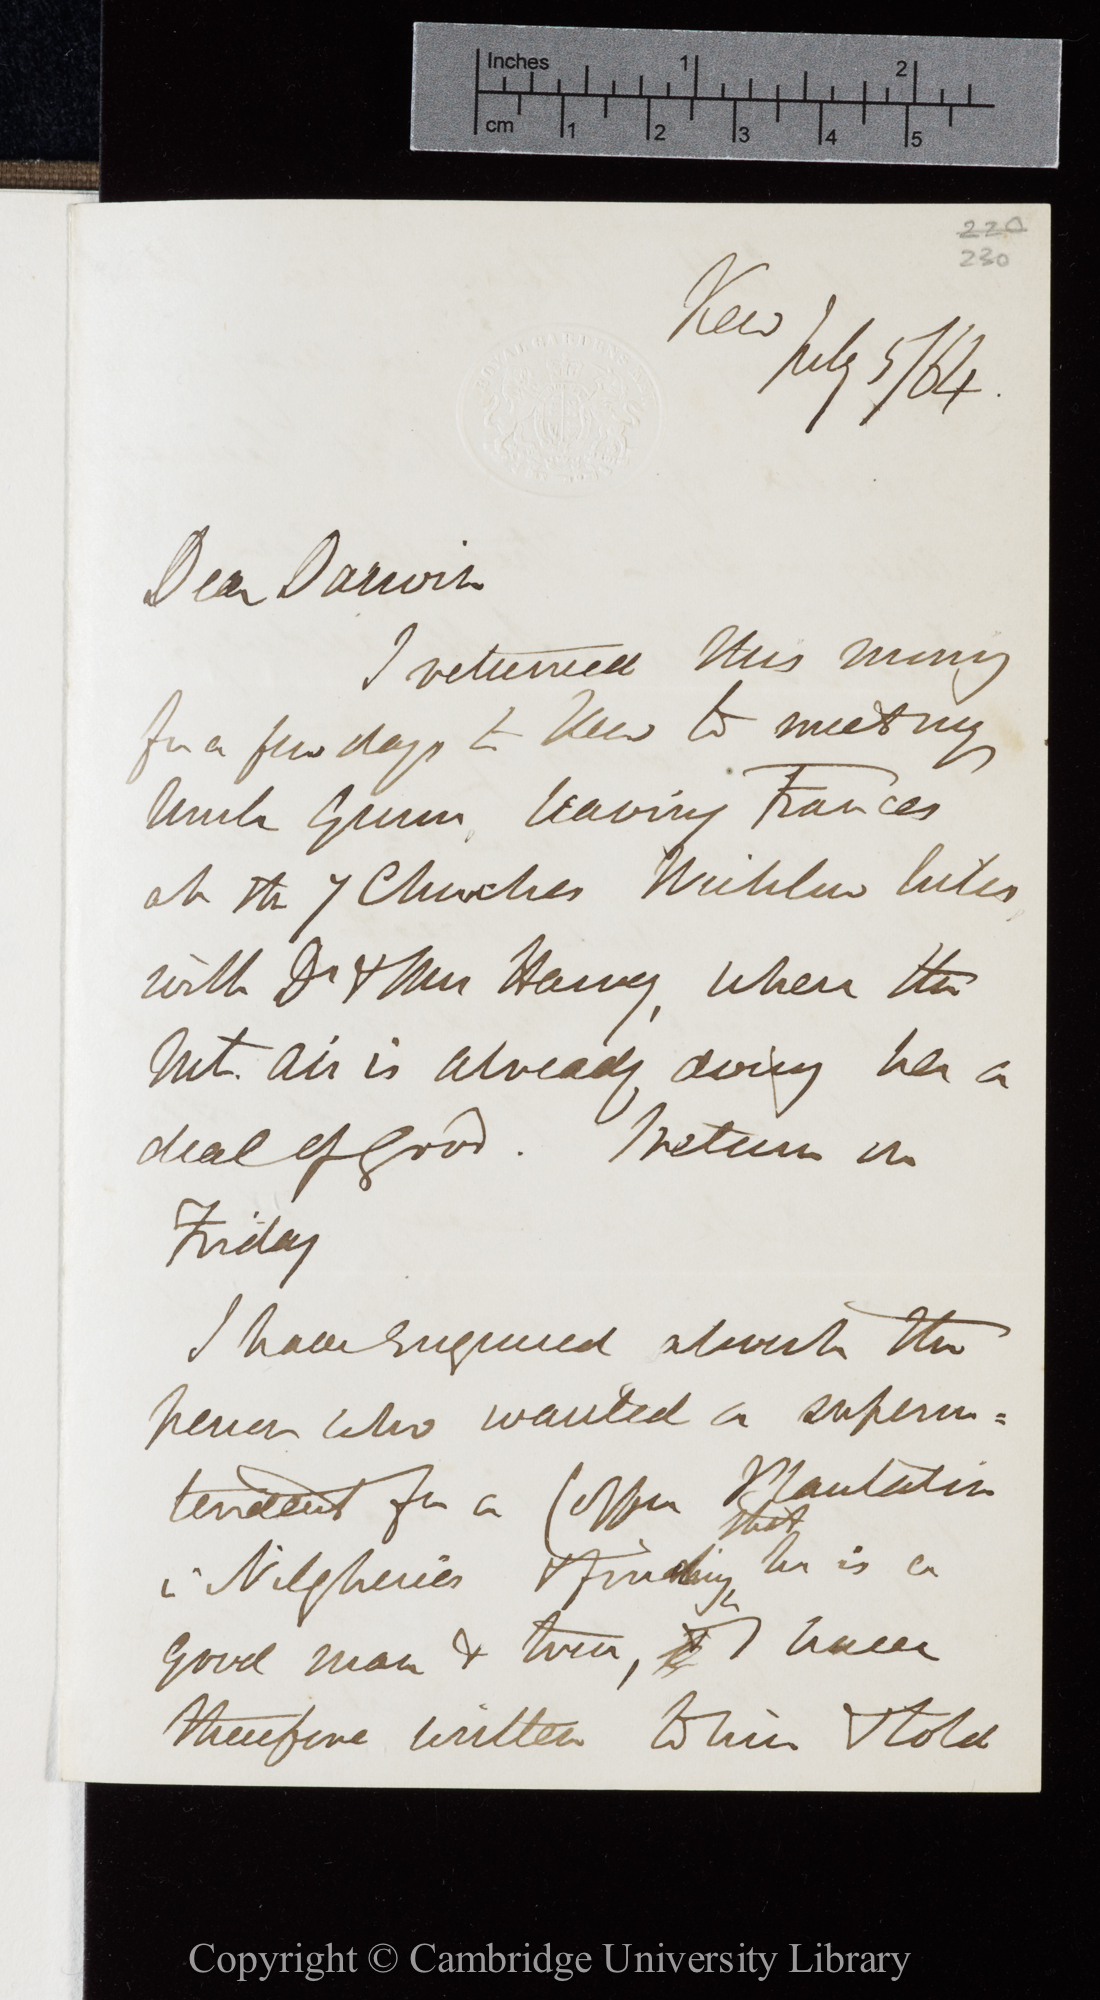 Inches 1 2
cm 1 2 3 4 5
220
230
ROYAL GARDENS KEW
Kew
July 5/64.
Dear Darwin
I returned this morng
for a few days to Kew to meet my
Uncle Gunn, leaving Frances
at the 7 Churches Wicklow
with Dr & Mrs Harvey, where the
Mt. air is already doing her a
deal of good. I return on
Friday
I have enquired about the
person who wanted a superin=
tendent for a Coffee Plantation
i Nilgheries & finding that he is a
good man & true, I have
therefore written to him & told
Copyright © Cambridge University Library